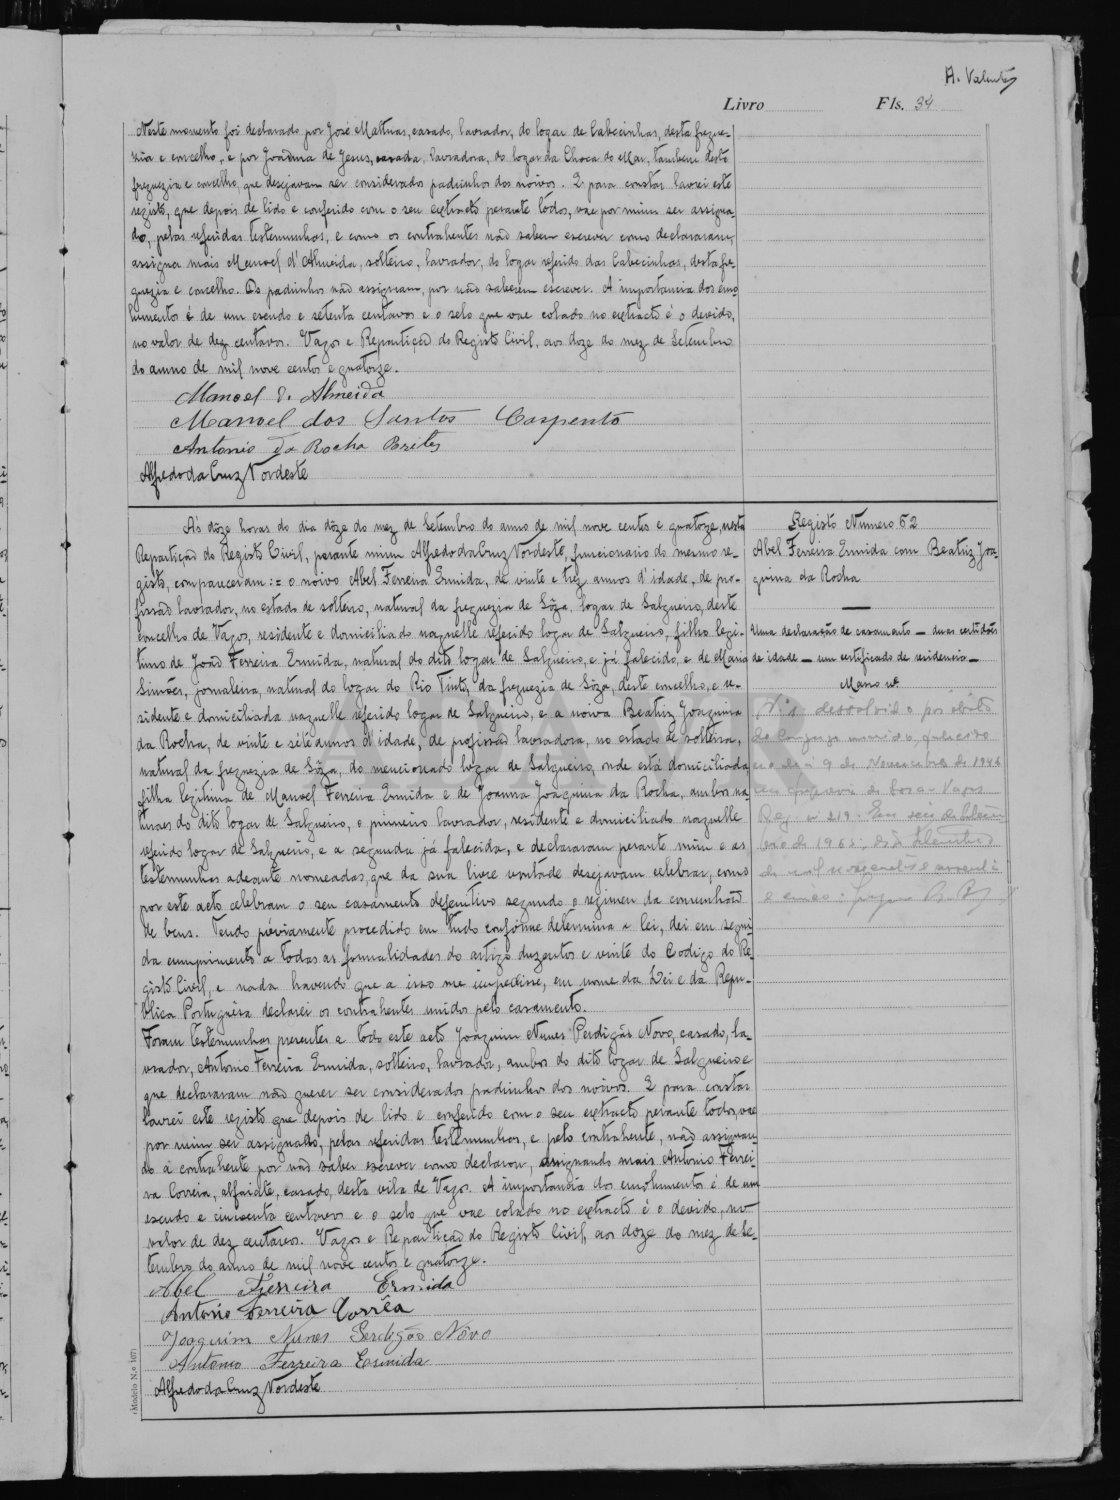 A. Valente
Livro Fls. 34
Neste momento foi declarado por José Mathias, casado, lavrador, do logar de Cabecinhas, desta fregue-
zia e concelho, e por Joaquina de Jesus, casada, lavradora, do logar da Choca do Mar, tambem desta
freguezia e concelho, que desejavam ser considerados padrinhos dos noivos. E para constar lavrei este
registo, que depois de lido e conferido com o seu extracto perante todos, vae por mim ser assigna-
do, pelas referidas testemunhas, e como os contrahentes não sabem escrever como declararam,
assigna mais Manoel d'Almeida, solteiro, lavrador, do logar referido das Cabecinhas, desta fre-
guezia e concelho. Os padrinhos não assignam, por não saberem escrever. A importancia dos emo-
lumentos é de um escudo e setenta centavos e o selo que vae colado no extracto é o devido,
no valor de dez centavos. Vagos e Repartição do Registo Civil, aos doze do mez de Setembro
do anno de mil nove centos e quatorze.
Manoel d. Almeida
Manoel dos Santos
Antonio da Rocha Brites
Alfredo da Cruz Nordeste
Ás dôze horas do dia dôze do mez de Setembro do anno de mil nove centos e quatorze, nesta
Repartição do Registo Civil, perante mim Alfredo da Cruz Nordeste, funcionario do mesmo re-
gisto, compareceram := o noivo Abel Ferreira Ermida, de vinte e trez annos d'idade, de pro-
fissão lavrador, no estado de solteiro, natural da freguezia de Sôza, logar de Salgueiro, deste
concelho de Vagos, residente e domiciliado naquelle referido logar de Salgueiro, filho legi-
timo de João Ferreira Ermida, natural do dito logar de Salgueiro, e já falecido, e de Maria
Simões, jornaleira, natural do logar do Rio Tinto, da freguezia de Sôza, deste concelho, e re-
sidente e domiciliada naquelle referido logar de Salgueiro, e a noiva Beatriz Joaquina
da Rocha, de vinte e sete annos d'idade, de profissão lavradora, no estado de solteira,
natural da freguezia de Sôza, do mencionado logar de Salgueiro, onde está domiciliada
filha legitima de Manoel Ferreira Ermida e de Joanna Joaquina da Rocha, ambos na-
turaes do dito logar de Salgueiro, o primeiro lavrador, residente e domiciliado naquelle
referido logar de Salgueiro, e a segunda já falecida, e declararam perante mim e as
testemunhas adeante nomeadas, que da sua livre vontade desejavam celebrar, como
por este acto celebram o seu casamento definitivo segundo o regimen da comunhão
de bens. Tendo préviamente procedido em tudo confórme determina a lei, dei em segui-
da cumprimento a todas as formalidades do artigo duzentos e vinte do Codigo do Re-
gisto Civil, e nada havendo que a isso me impedisse, em nome da Lei e da Repu-
blica Portuguêsa declarei os contrahentes unidos pelo casamento.
Foram testemunhas presentes a todo este acto Joaquim Nunes Perdigão Novo, casado, la-
vrador, Antonio Ferreira Ermida, solteiro, lavrador, ambos do dito logar de Salgueiro e
que declararam não querer ser considerados padrinhos dos noivos. E para constar
lavrei este registo que depois de lido e conferido com o seu extracto perante todos, vae
por mim ser assignado, pelas referidas testemunhas, e pelo contrahente, não assignan-
do a contrahente por não saber escrever como declarou, assignando mais Antonio Ferrei-
ra Correia, alfaiate, casado, desta vila de Vagos. A importancia dos emolumentos é de um
escudo e cincoenta centavos e o selo que vae colado no extracto é o devido, no
valor de dez centavos. Vagos e Repartição do Registo Civil, aos doze do mez de Se-
tembro do anno de mil nove centos e quatorze.
Abel Ferreira Ermida
Antonio Ferreira Corrêa
Joaquim Nunes Perdigão Novo
Antonio Ferreira Ermida
Alfredo da Cruz Nordeste
Registo Numero 62
Abel Ferreira Ermida com Beatriz Joa-
quina da Rocha
Uma declaração de casamento — duas certidões
de idade — um certificado de residencia —
N.º 1 dissolvido por obito
do conjuge marido, falecido
no dia 9 de Novembro de 1946
na freguesia de Vagos
Reg. nº 219. Em seis de
de 1965
de mil novecentos e sessenta
e cinco
(Modelo N.º 107)